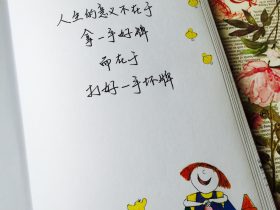 人生的意义不在于
拿一手好牌
而在于
打好一手坏牌